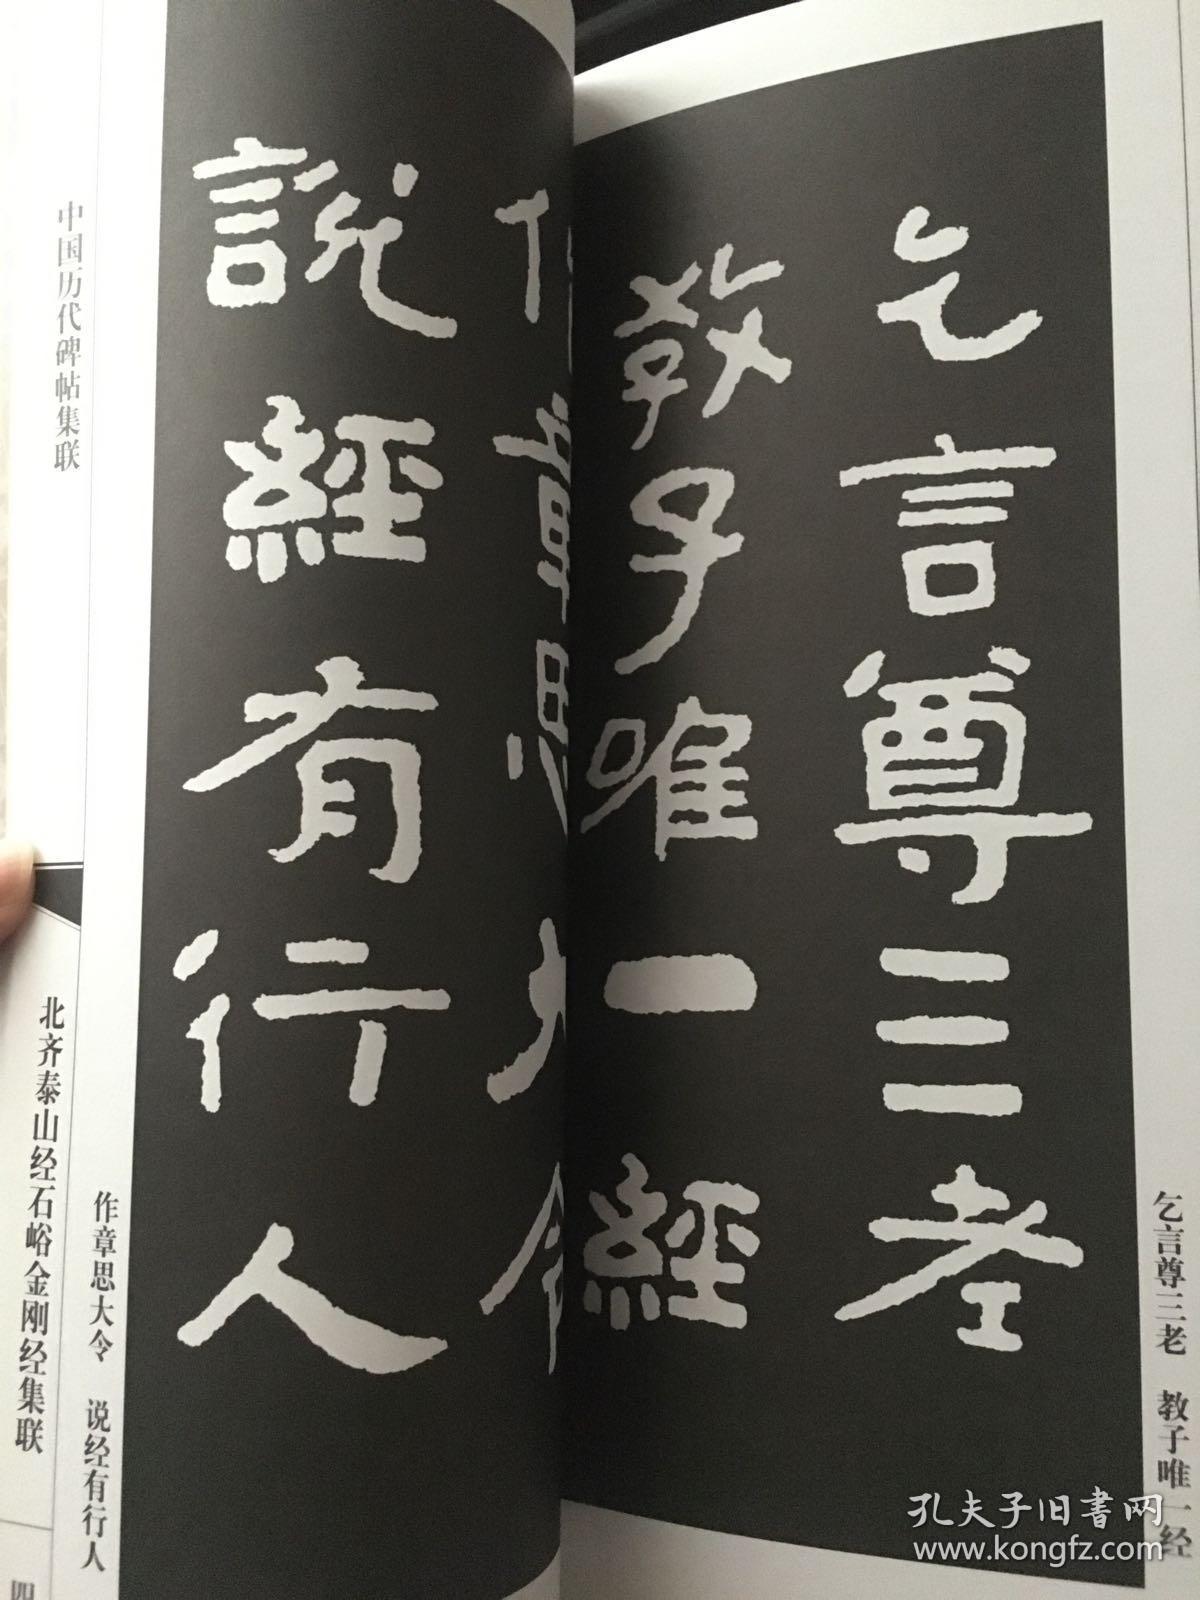 乞言尊三老
教子唯一經
乞言尊三老 教子唯一经
作章思大令
説經有行人
作章思大令 说经有行人
中国历代碑帖集联
北齐泰山经石峪金刚经集联
四
孔夫子旧书网
www.kongfz.com